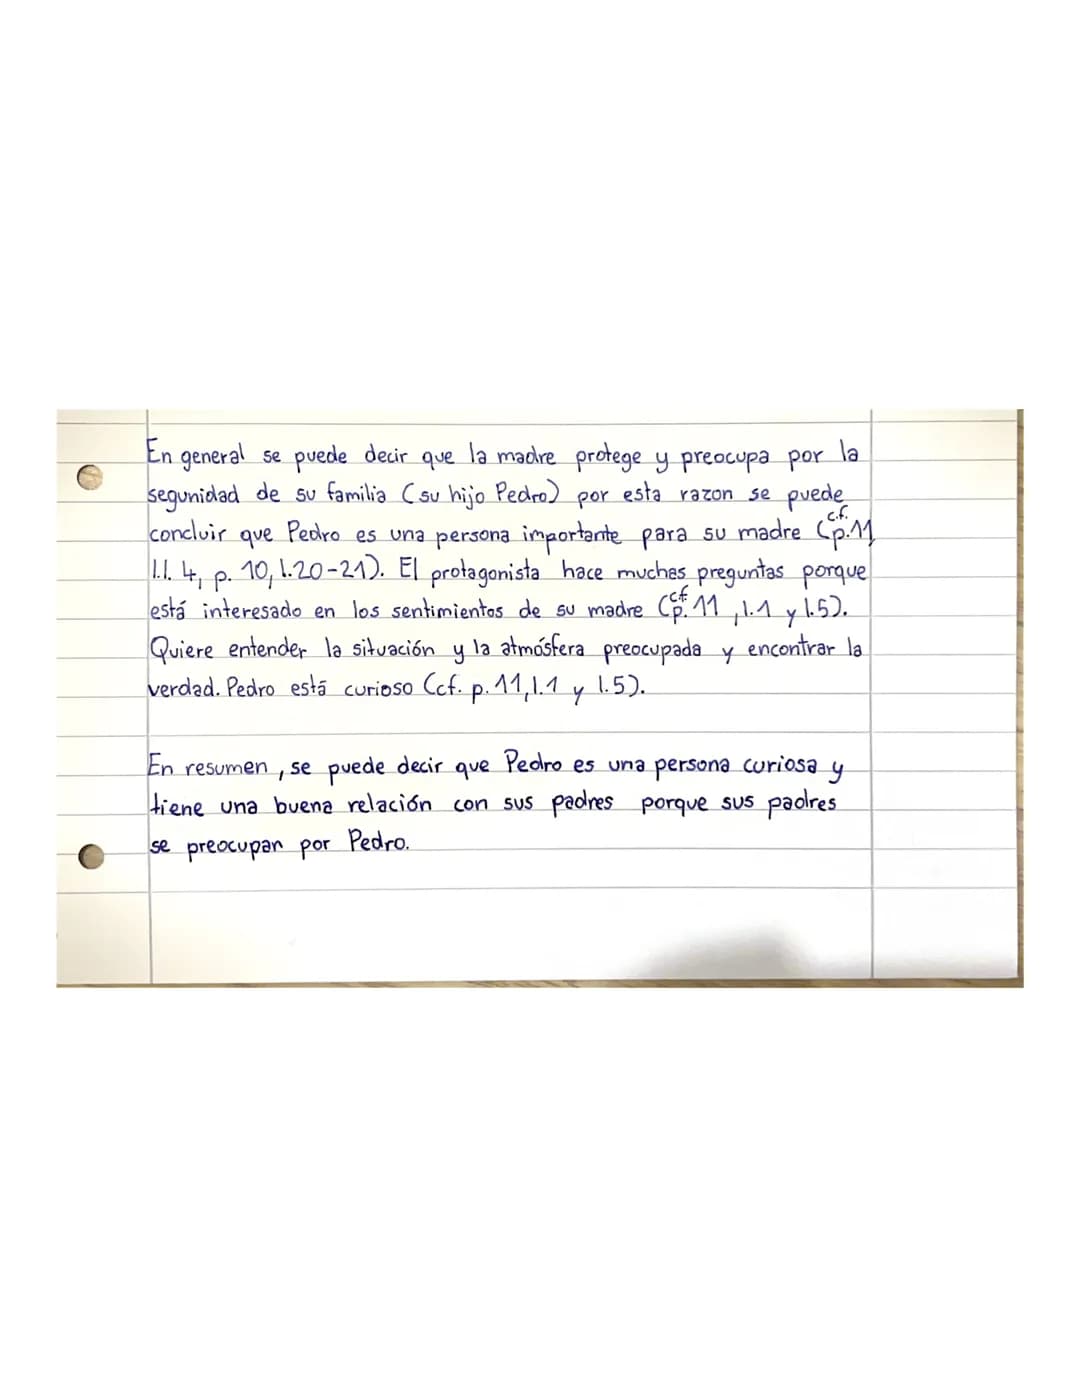 En general se puede decir que la madre protege y preocupa por la
segunidad de su familia (su hijo Pedro) por esta razon se puede
concluir que Pedro es una persona importante para su madre (c.f. p.11
l.l. 4, p. 10, l.20-21). El protagonista hace muchas preguntas porque
está interesado en los sentimientos de su madre (cf. p. 11, l.1 y l.5).
Quiere entender la situación y la atmósfera preocupada y encontrar la
verdad. Pedro está curioso (cf. p. 11, l.1 y l.5).
En resumen, se puede decir que Pedro es una persona curiosa y
tiene una buena relación con sus padres porque sus padres
se preocupan por Pedro.